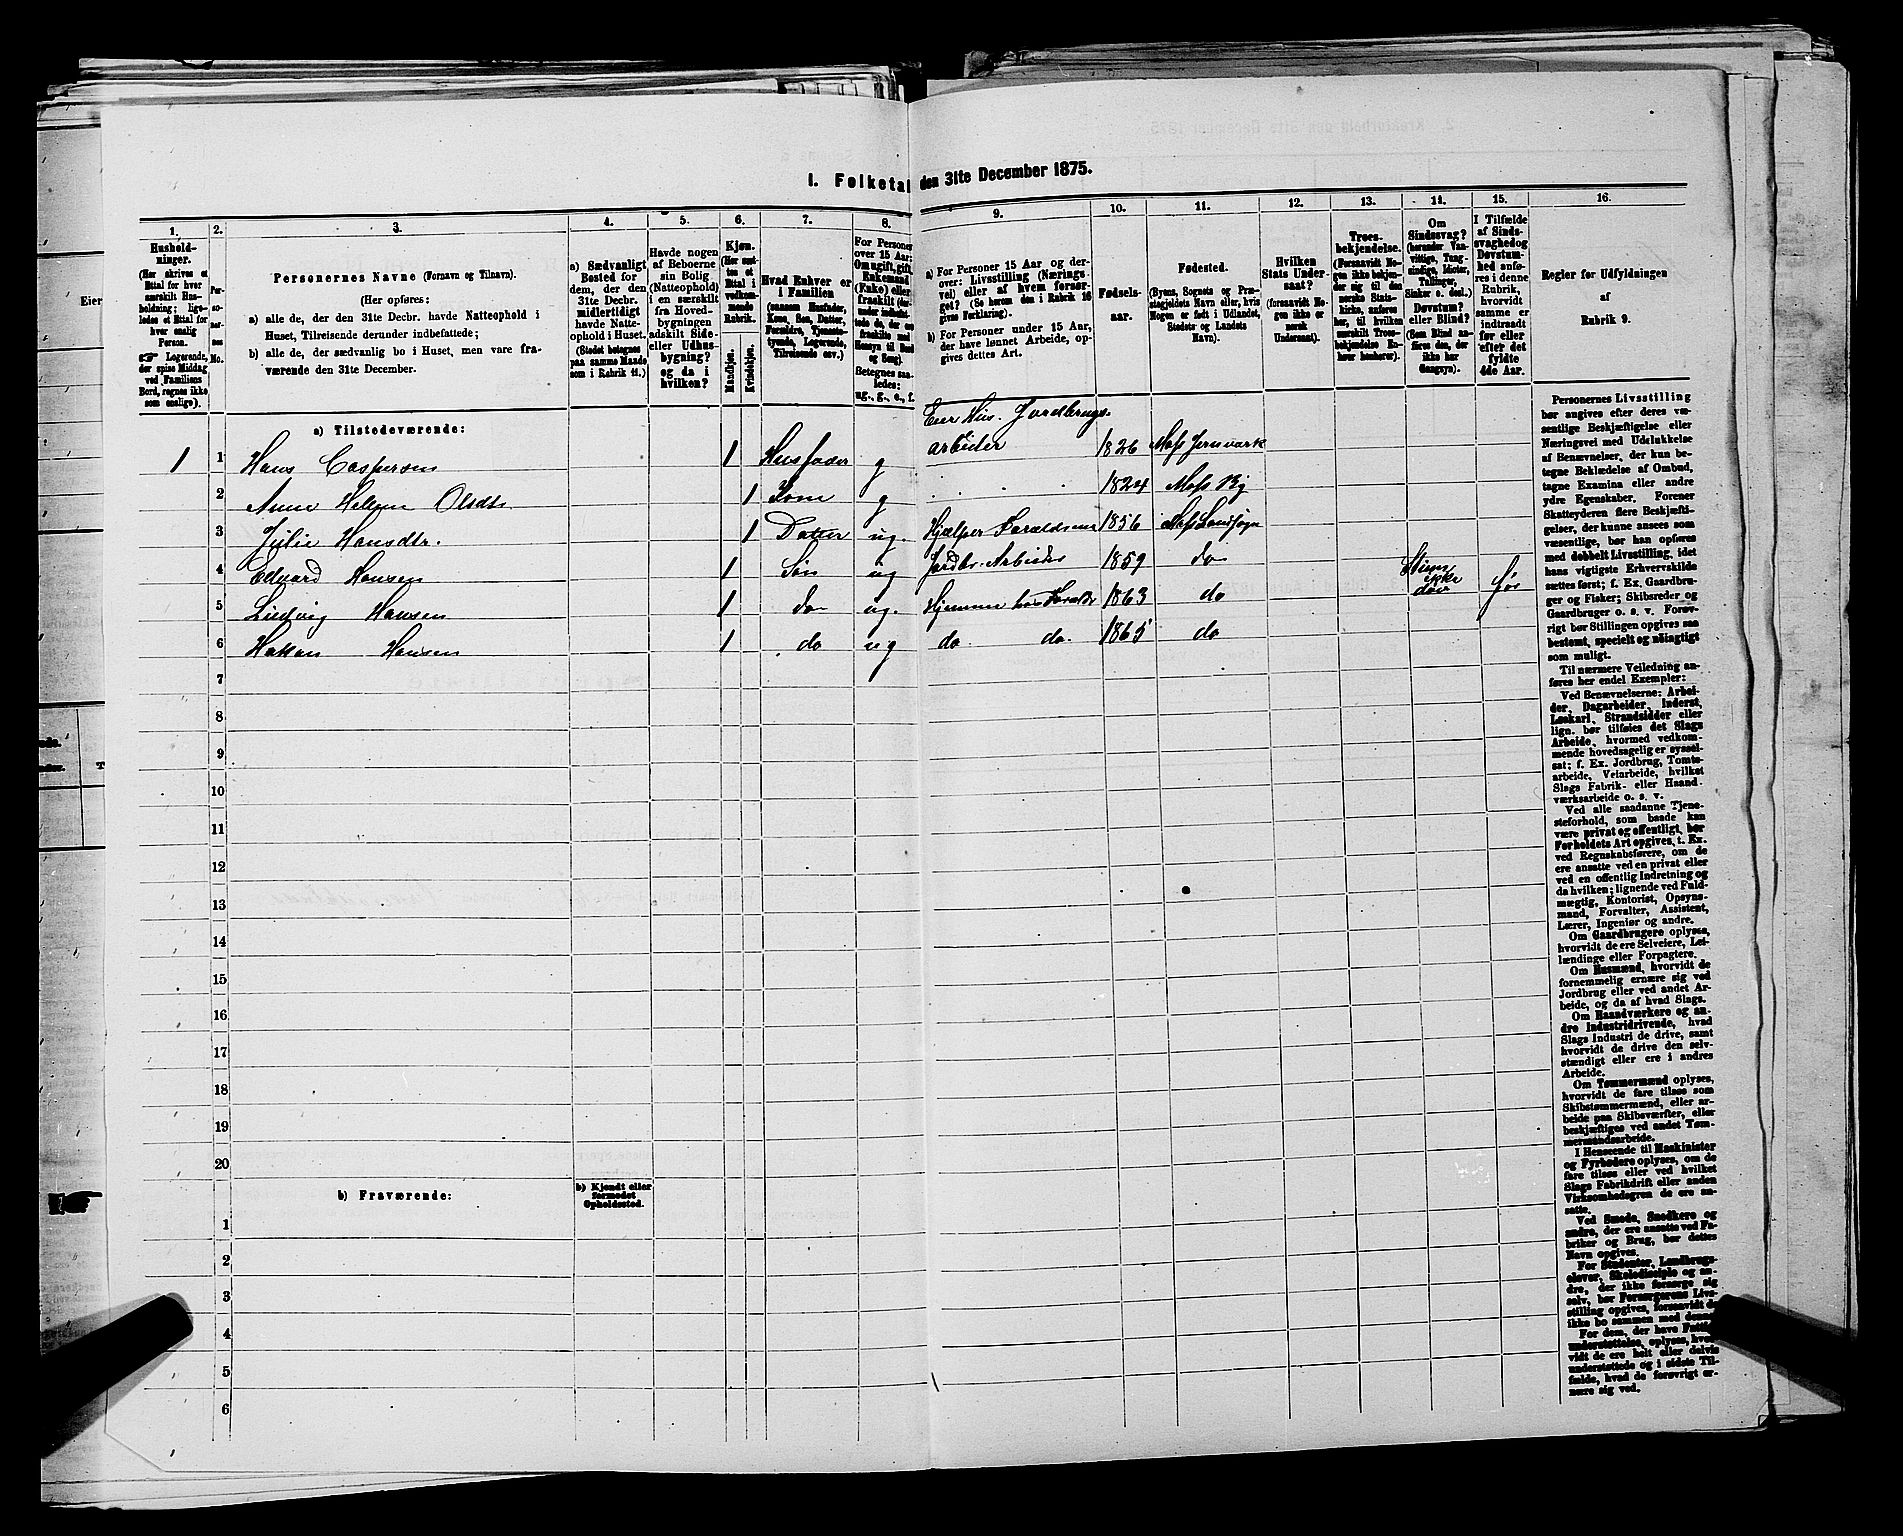 1. Folketal den 31te December 1875.
1. 2. 3. 4. 5. 6. 7. 8. 9. 10. 11. 12. 13. 14. 15. 16.
Hushold-
ninger.
(Her skrives et
Ettal for hver
særskilt Hus-
holdning; lige-
ledes et Ettal for
hver enslig
Person.
☞ Logerende,
der spise Middag
ved Familiens
Bord, regnes ikke
som enslige).
Personernes Navne (Fornavn og Tilnavn).
(Her opføres:
a) alle de, der den 31te Decbr. havde Natteophold i
Huset, Tilreisende derunder indbefattede;
b) alle de, der sædvanlig bo i Huset, men vare fra-
værende den 31te December.
a) Sædvanligt
Bosted for
dem, der den
31te Decbr.
midlertidigt
havde Natte-
ophold i Huset.
(Stedet betegnes
paa samme Maade
som i Rubrik 11.)
Havde nogen
af Beboerne
sin Bolig
(Natteophold)
i en særskilt
fra Hoved-
bygningen
adskilt Side-
eller Udhus-
bygning?
og da i
hvilken?
Kjøn.
(Her sæt-
tes et
Ettal i
vedkom-
mende
Rubrik.
Mandkjøn.
Kvindekjøn.
Hvad Enhver er
i Familien
(saasom Husfader,
Kone, Søn, Datter,
Forældre, Tjeneste-
tyende, Logerende,
Tilreisende osv.)
For Personer
over 15 Aar:
Om ugift, gift,
Enkemand
(Enke) eller
fraskilt
Betegnes saa-
ledes:
ug., g., e., f.
a) For Personer 15 Aar og der-
over: Livsstilling (Nærings-
vei) eller af hvem forsør-
get? (Se herom den i Rubrik 16
givne Forklaring).
b) For Personer under 15 Aar,
der have lønnet Arbeide, op-
gives dettes Art.
Fødsels-
aar.
Fødested.
(Byens, Sognets og Præ-
stegjeldets Navn eller, hvis
Nogen er født i Udlandet,
Stedets og Landets
Navn).
Hvilken
Stats Under-
saat?
(forsaavidt No-
gen ikke er
norsk
Undersaat).
Troes-
bekjendelse.
(Forsaavidt No-
gen ikke bekjen-
der sig til den
norske Stats-
kirke, anføres
her, til hvilken
særskilt Troes-
bekjendelse En-
hver henhører).
Om
Sindssvag?
(herunder Van-
vittige, Tung-
sindige, Idioter,
Tullinger,
Sinker o. desl.)
Døvstum?
eller Blind?
(Som Blind an-
føres den, der
ikke har
Gangsyn).
I Tilfælde
af Sinds-
svaghed og
Døvstum-
hed anfø-
res i denne
Rubrik,
hvorvidt
samme er
indtraadt
før eller
efter det
fyldte
4de Aar.
Regler for Udfyldningen
af
Rubrik 9.
a) Tilstedeværende:
Eier Hus. Jordbrugs-
1 1 Hans Caspersen 1 Husfader g arbeider 1826 Moss Jernværk
2 Anne Hellene Olsdtr 1 Kone g 1824 Moss By
3 Julie Hansdtr. 1 Datter ug. Hjælper Forældrene 1856 Moss Landsogn
4 Edvard Hansen 1 Søn ug Jordbr. Arbeider 1859 do Stum ikke døv før
5 Ludvig Hansen 1 do ug. Hjemme hos Forældr 1863 do
6 Hakan Hansen 1 do ug do do. 1865 do
7
8
9
10
11
12
13
14
15
16
17
18
19
20
b) Fraværende:
b) Kjendt eller
formodet
Opholdssted.
1
2
3
4
5
6
Personernes Livsstilling
bør angives efter deres væ-
sentlige Beskjæftigelse eller
Næringsvei med Udelukkelse
af Benævnelser, der kun be-
tegne Beklædelse af Ombud,
tagne Examina eller andre
ydre Egenskaber. Forener
Skatteyderen flere Beskjæfti-
gelser, der kunne ansees som
væsentlige, bør han opføres
med dobbelt Livsstilling, idet
hans vigtigste Erhvervskilde
sættes først; f. Ex. Gaardbru-
ger og Fisker; Skibsreder og
Gaardbruger o. s. v. Forøv-
rigt bør Stillingen opgives saa
bestemt, specielt og nøiagtigt
som muligt.
Til nærmere Veiledning an-
føres her endel Exempler:
Ved Benævnelserne: Arbei-
der, Dagarbeider, Inderst,
Løskarl, Strandsidder eller
lign. bør tilføies det Slags
Arbeide, hvormed vedkom-
mende hovedsagelig er syssel-
sat; f. Ex. Jordbrug, Tomte-
arbeide, Veiarbeide, hvilket
Slags Fabrik- eller Haand-
værksarbeide o. s. v.
Ved alle saadanne Tjene-
steforhold, som baade kan
være privat og offentligt, bør
Forholdets Art opgives, t. Ex.
ved Regnskabsførere, om de
ere ansatte ved en privat eller
ved en offentlig Indretning og
da hvilken; lignende ved Fuld-
mægtig, Kontorist, Opsyns-
mand, Forvalter, Assistent,
Lærer, Ingeniør og andre.
Om Gaardbrugere oplyses,
hvorvidt de ere Selveiere, Lei-
lændinge eller Forpagtere.
Om Husmænd, hvorvidt de
fornemmelig ernære sig ved
Jordbrug eller ved andet Ar-
beide, og da af hvad Slags.
Om Haandværkere og an-
dre Industridrivende, hvad
Slags Industri de drive, samt
hvorvidt de drive den selv-
stændigt eller ere i andres
Arbeide.
Om Tømmermænd oplyses,
hvorvidt de fare tilsøs som
Skibstømmermænd, eller ar-
beide paa Skibsværfter, eller
beskjæftiges ved andet Tøm-
mermandsarbeide.
I Henseende til Maskinister
og Fyrbødere oplyses, om de
fare tilsøs eller ved hvilket
Slags Fabrikdrift eller anden
Virksomhedsgren de ere an-
satte.
Ved Smede, Snedkere og
andre, der ere ansatte ved Fa-
briker og Brug, bør dettes
Navn opgives.
For Studenter, Landbrugs-
elever, Skoledisciple og an-
dre, der ikke forsørge sig
selv, bør Forsørgerens Livs-
stilling opgives, forsaavidt de
ikke bo sammen med denne.
For dem, der have Fattig-
understøttelse, oplyses, hvor-
vidt de ere helt eller delvis
understøttede og i sidste Til-
fælde, hvad de forøvrigt er-
nære sig ved.